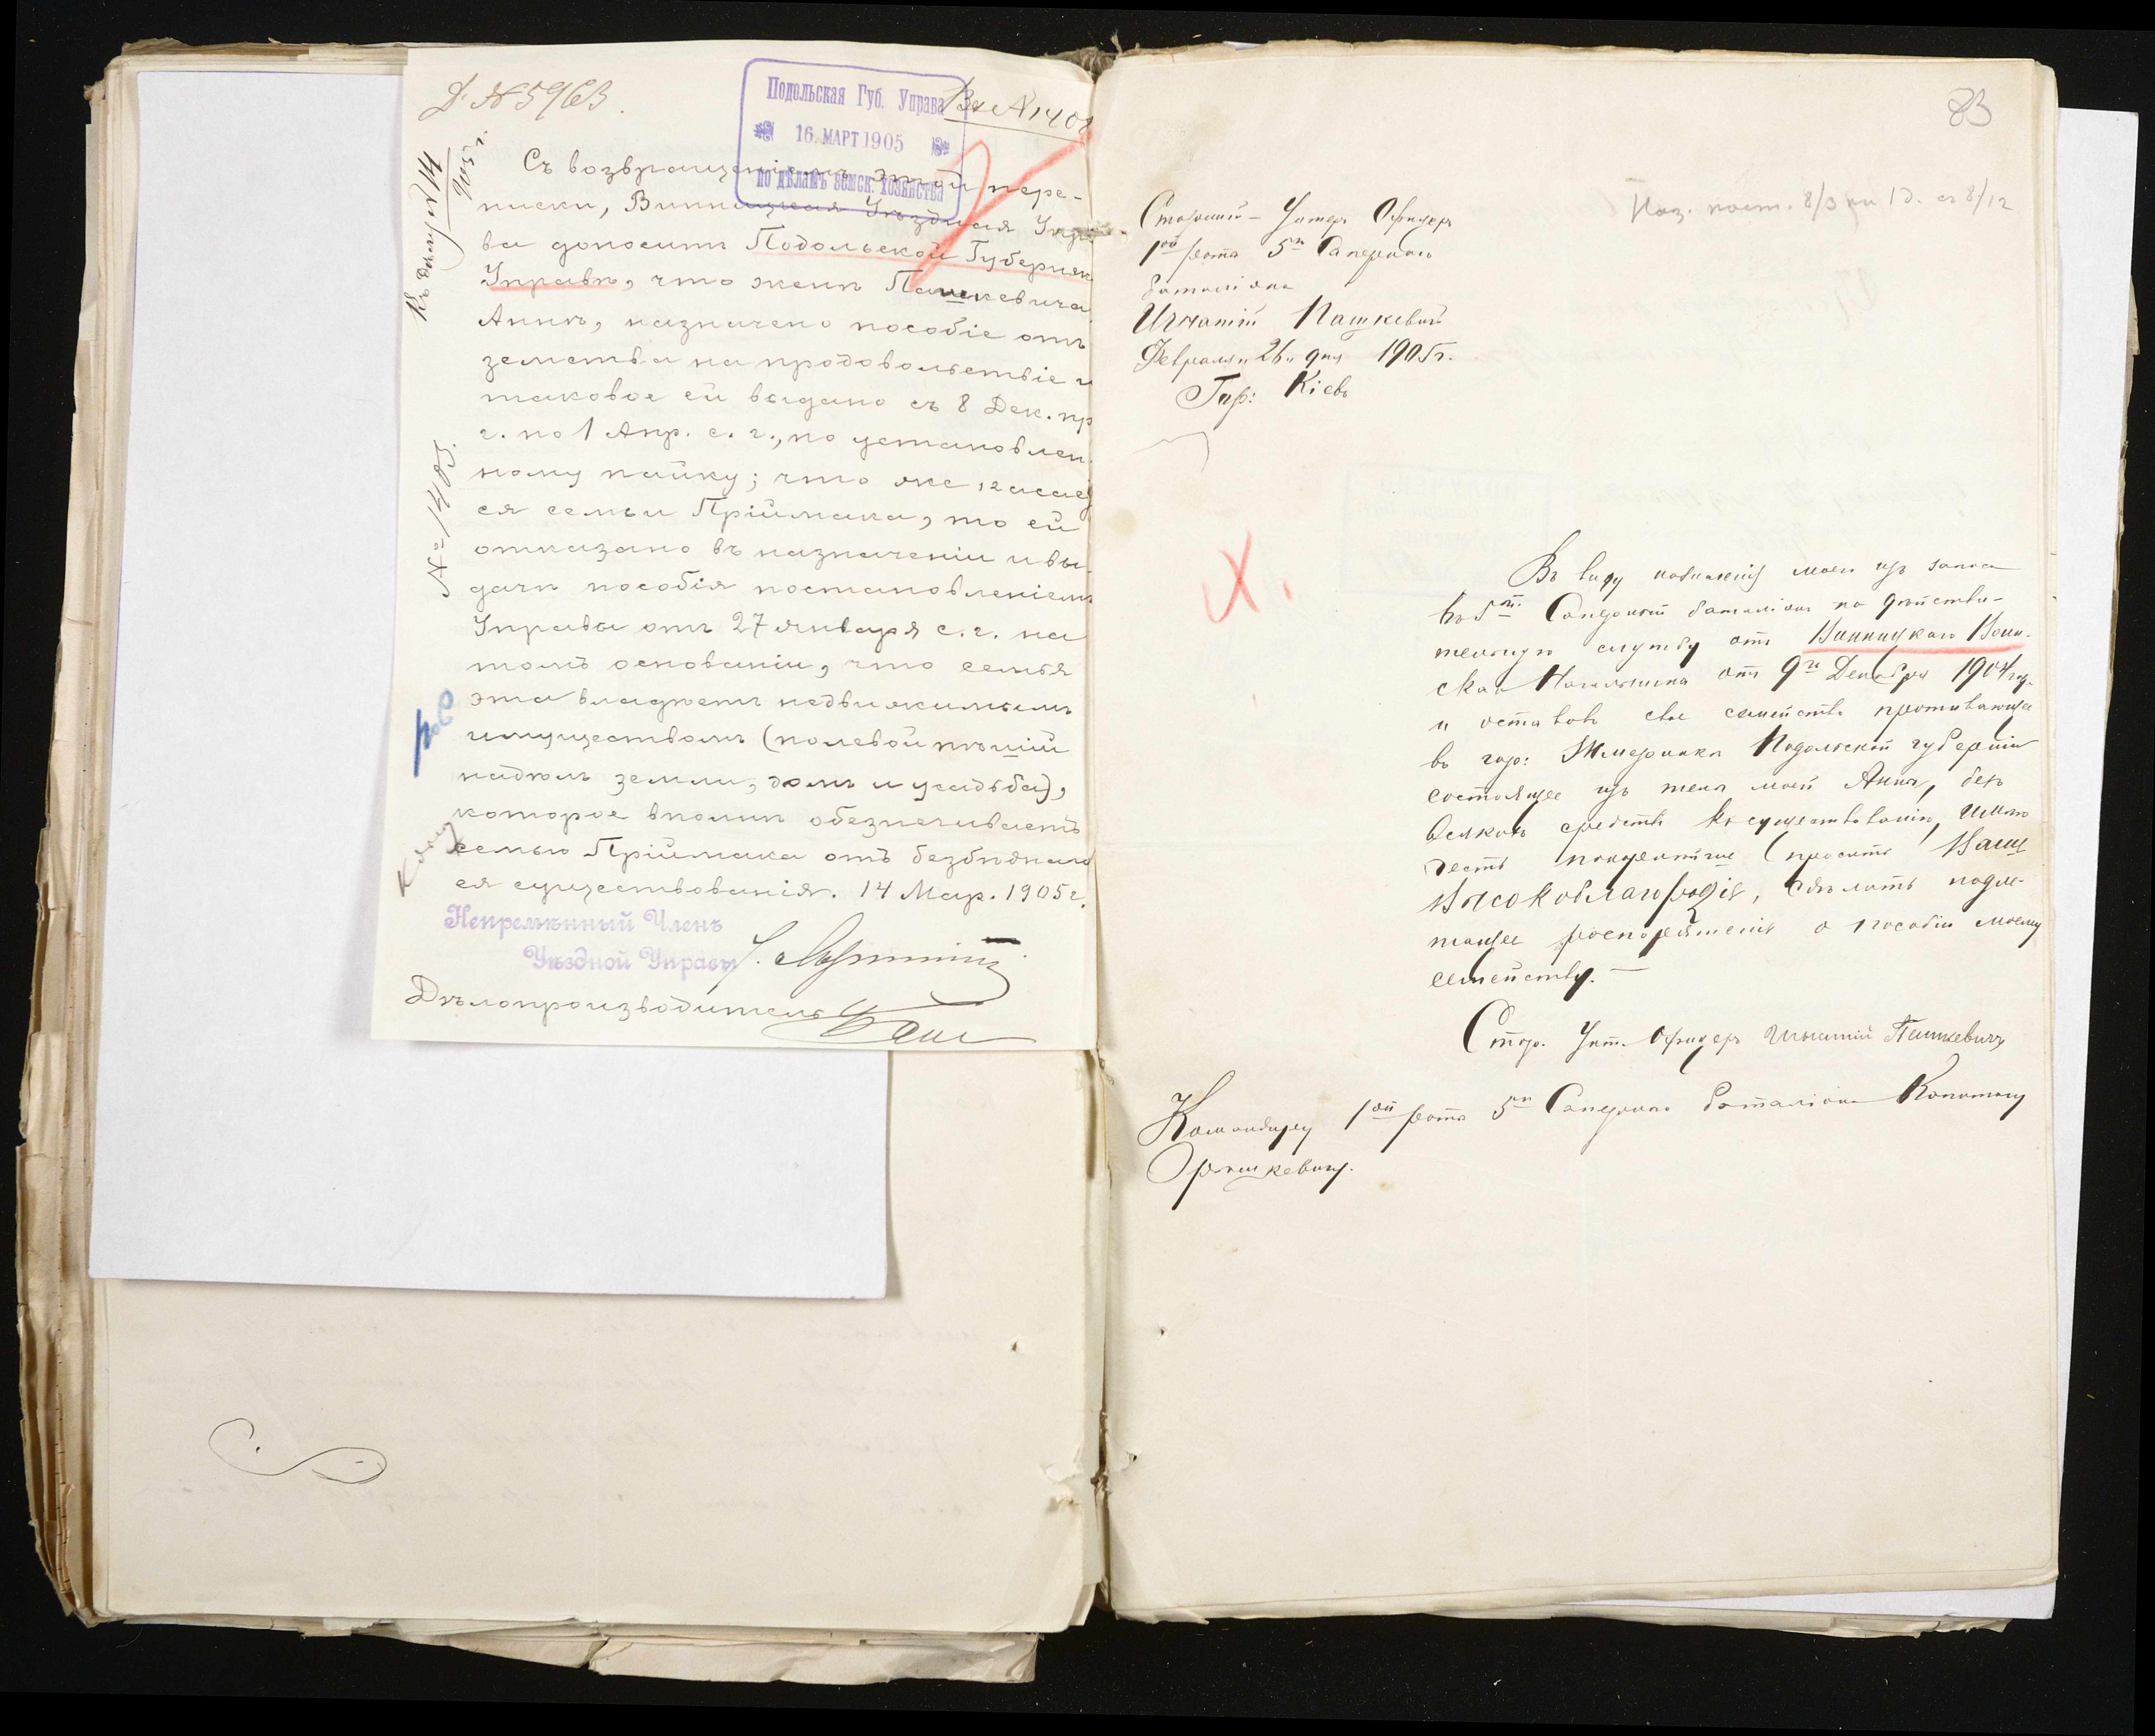 Д. № 5963.
Подольская Губ. Управа
16. МАРТ 1905
по дѣламъ земск. хозяйства
Вх №
№ 1483.
Съ возвращеніемъ этой пере-
писки, Винницкая Уѣздная Упра
ва доноситъ Подольской Губернск
Управѣ, что женѣ Пашкевича
Аннѣ, назначено пособіе отъ
земства на продовольствіе и
таковое ей выдано съ 8 Дек. пр
г. по 1 Апр. с. г., по установлен.
ному пайку; что же касает
ся семьи Пріймака, то ей
отказано въ назначеніи и вы-
дачѣ пособія постановленіемъ
Управы отъ 27 января с. г. на
томъ основаніи, что семья
эта владѣетъ недвижимымъ
имуществомъ (полевой пѣшій
надѣлъ земли, домъ и усадьба),
которое вполнѣ обезпечиваетъ
семью Пріймака отъ безбѣднаго
ея существованія. 14 Мар. 1905 г.
Непремѣнный Членъ
Уѣздной Управы
Дѣлопроизводитель
83
Наз. пост. 8/3 по 1 d. съ 8/12
Старшій - Унтеръ Офицеръ
1ой роты 5го Сапернаго
баталіона
Игнатій Пашкевичъ
Февраля „26" дня 1905 г.
Гор: Кіевъ
Въ виду моего изъ запаса
въ 5й Саперный баталіонъ на дѣйстви-
тельную службу отъ Винницкаго Воин-
скаго Начальника отъ 9го Декабря 1904 год.
и оставивъ свое семейство проживающее
въ гор: Жмеринкѣ Подольской губерніи
состоящее изъ жены моей Анны, безъ
всякихъ средствъ къ существованію, имѣю
честь просить Ваше
Высокоблагородіе, сдѣлать надле-
жащее распоряженіе о пособіи моему
семейству. —
Стар. Унт. Офицеръ Игнатій Пашкевичъ
Командиру 1ой роты 5го Сапернаго баталіона Капитану